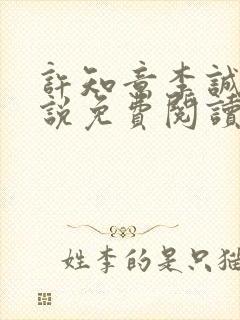 許知章李誠
說免費閱讀
姓李的是只猫